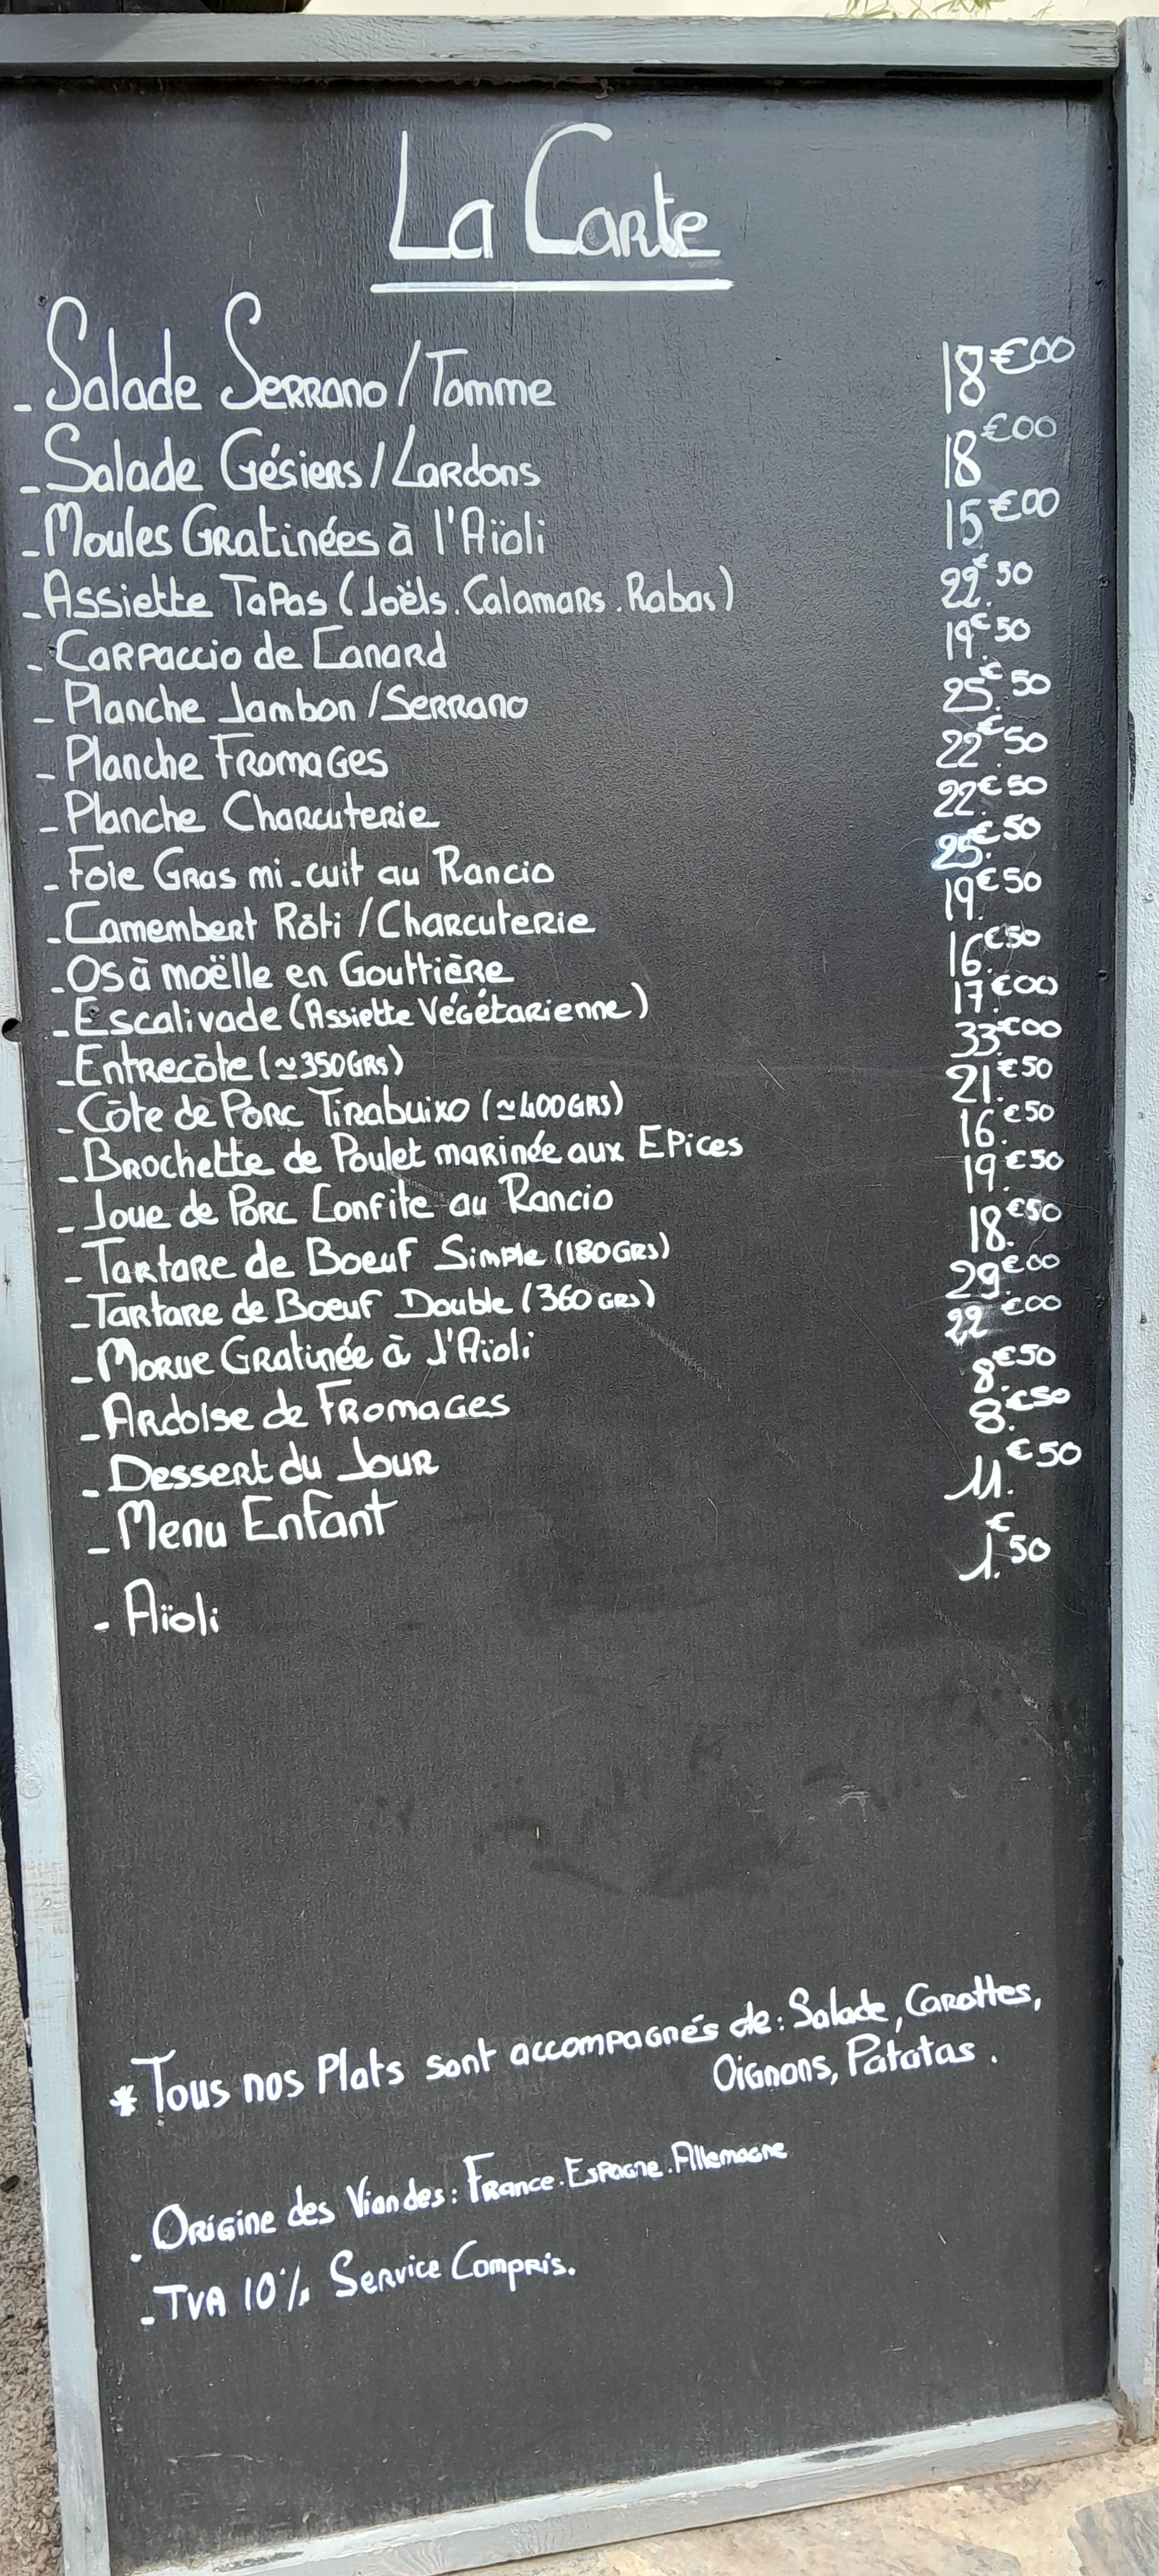 La Carte
- Salade Serrano / Tomme 18€00
- Salade Gésiers / Lardons 18€00
- Moules Gratinées à l'Aïoli 15€00
- Assiette Tapas (Joëls. Calamars. Rabas) 22.€50
- Carpaccio de Canard 19.€50
- Planche Jambon / Serrano 25.€50
- Planche Fromages 22.€50
- Planche Charcuterie 22.€50
- Foie Gras mi-cuit au Rancio 25.€50
- Camembert Rôti / Charcuterie 19.€50
- Os à moëlle en Gouttière 16.€50
- Escalivade (Assiette Végétarienne) 17.€00
- Entrecôte (≃350GRS) 33.€00
- Côte de Porc Tirabuixo (≃400GRS) 21.€50
- Brochette de Poulet marinée aux Epices 16.€50
- Joue de Porc Confite au Rancio 19.€50
- Tartare de Boeuf Simple (180GRS) 18.€50
- Tartare de Boeuf Double (360GRS) 29.€00
- Morue Gratinée à l'Aïoli 22€00
- Ardoise de Fromages 8.€50
- Dessert du Jour 8.€50
- Menu Enfant 11.€50
- Aïoli 1.€50
* Tous nos Plats sont accompagnés de : Salade, Carottes,
Oignons, Patatas.
. Origine des Viandes : France. Espagne. Allemagne
- TVA 10% Service Compris.